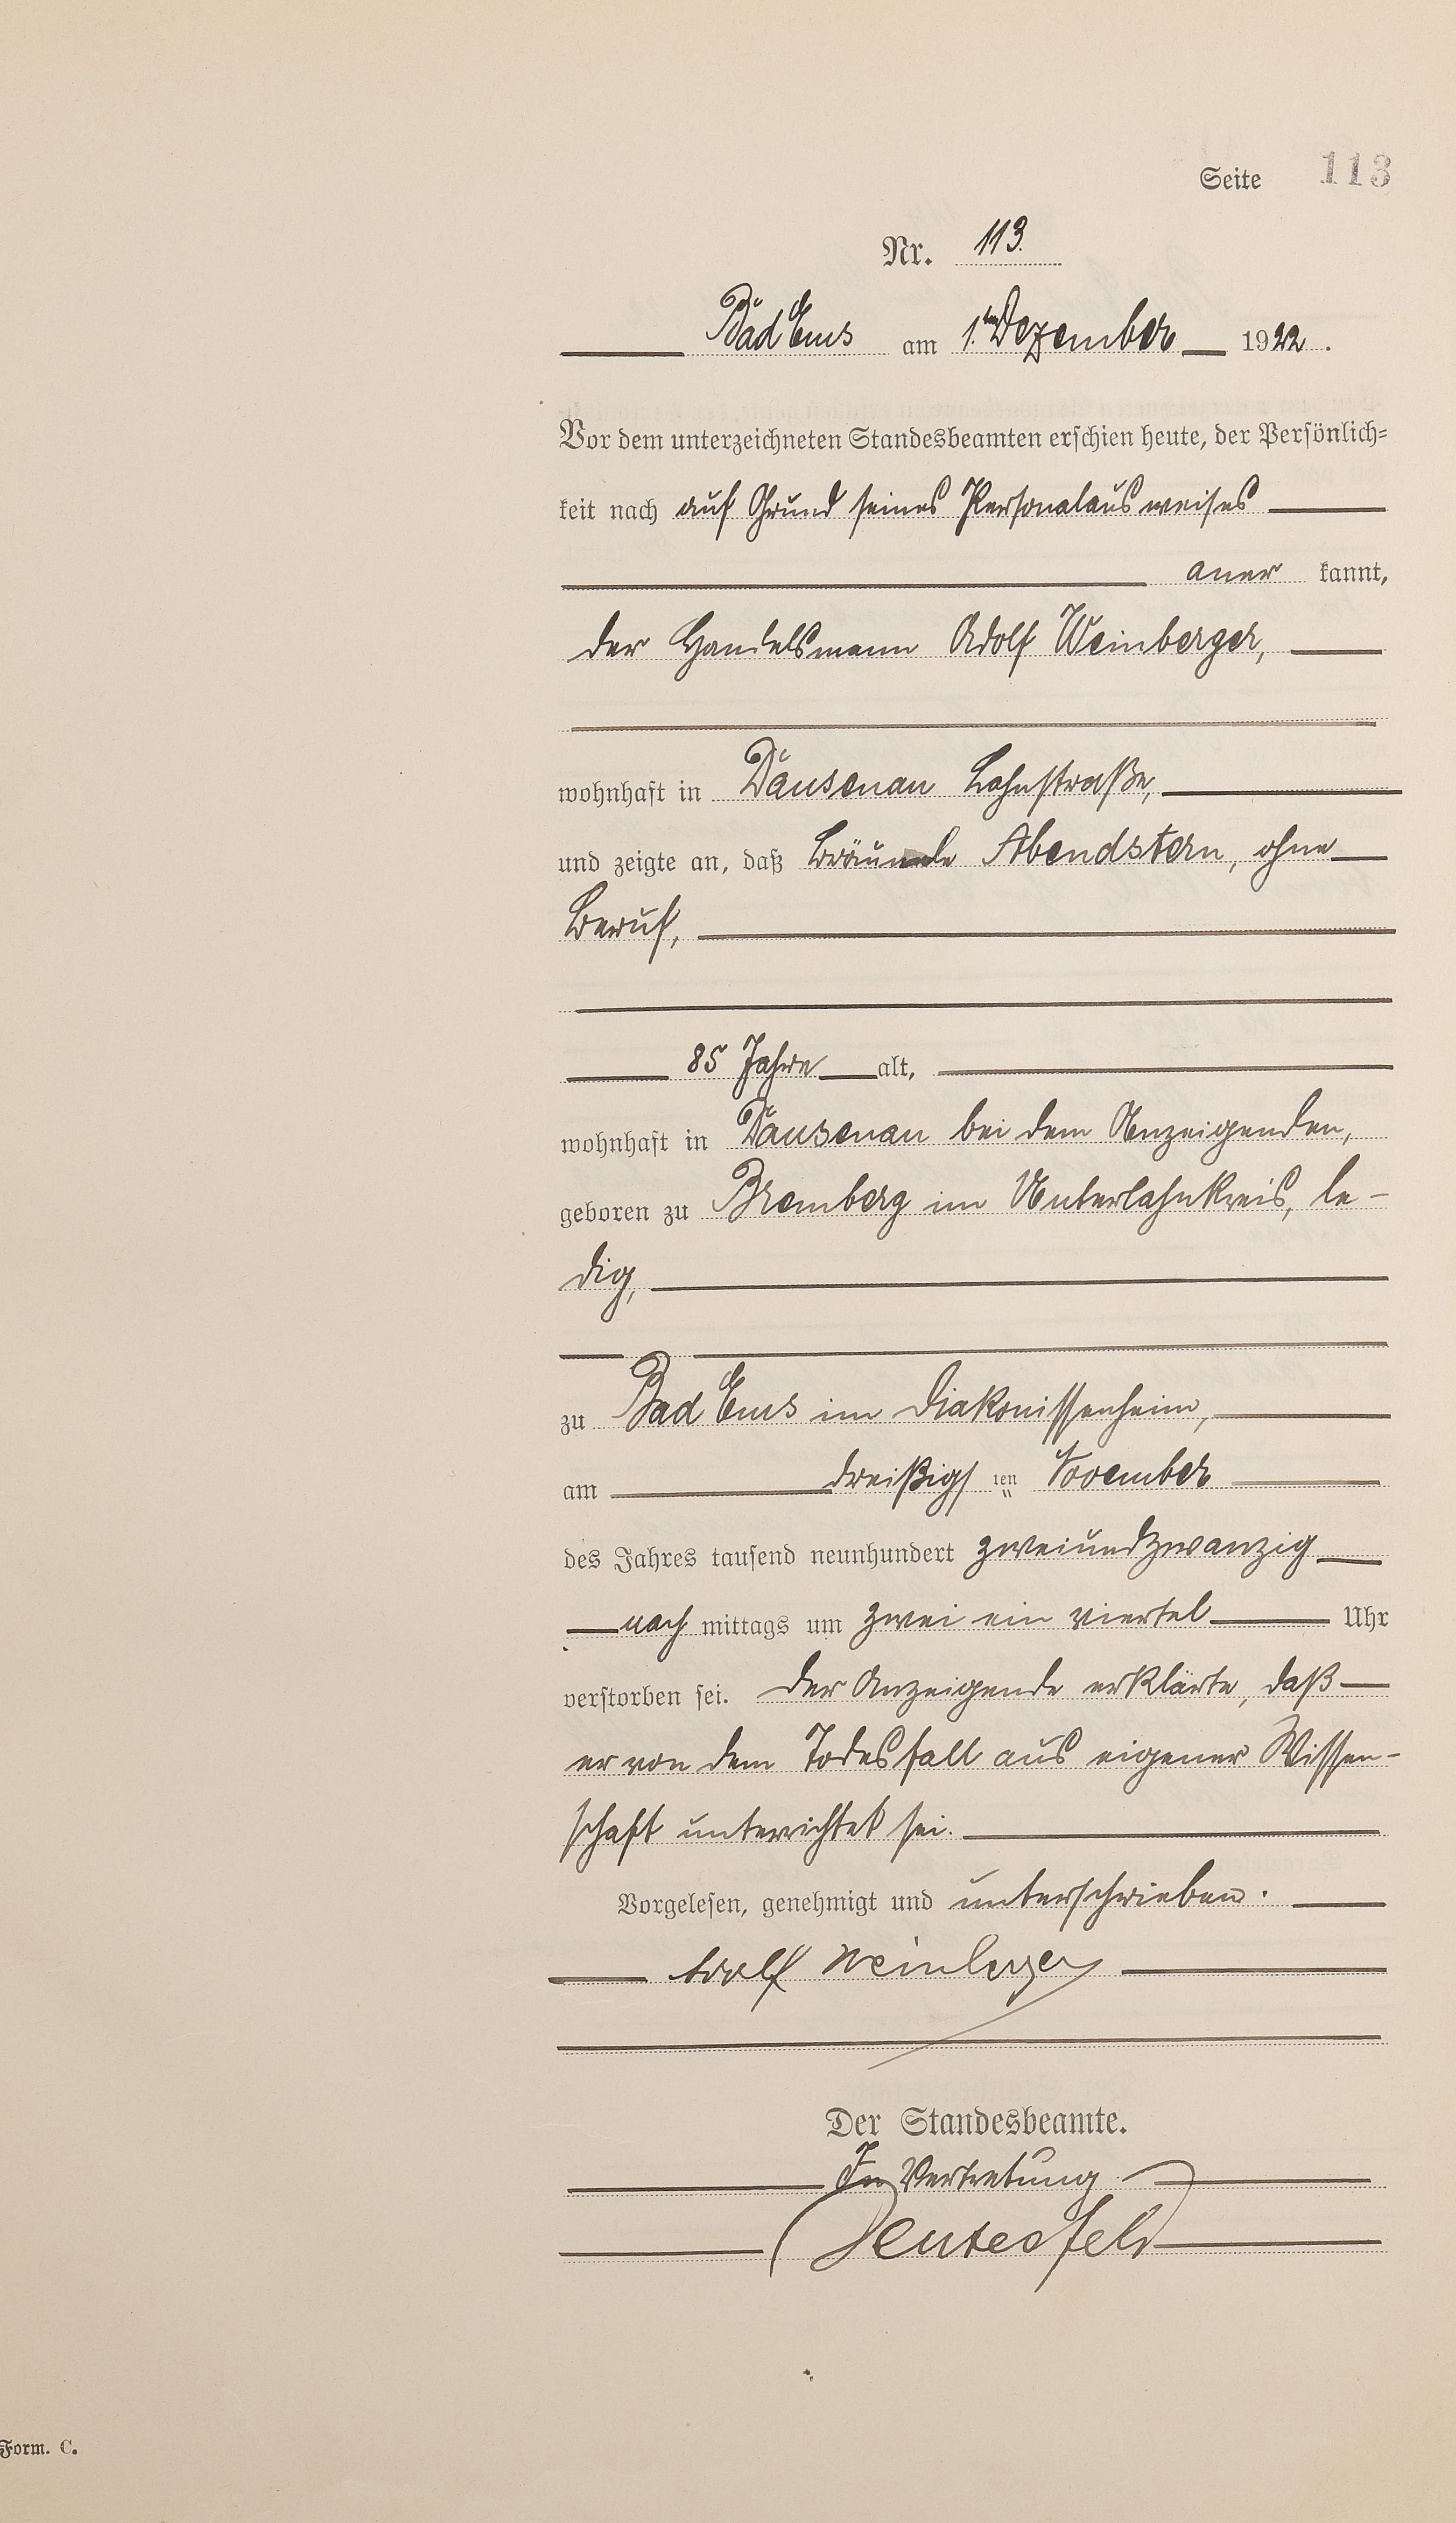 Seite 113
Nr. 113.
Bad Ems am 1.ten Dezember 1922.
Vor dem unterzeichneten Standesbeamten erschien heute, der Persönlich=
keit nach auf Grund seines Personalausweises
aner kannt,
der Handelsmann Adolf Weinberger,
wohnhaft in Dausenau Lahnstraße,
und zeigte an, daß Bräunele Abendstern, ohne
Beruf,
85 Jahre alt,
wohnhaft in Dausenau bei dem Anzeigenden,
geboren zu Bremberg im Unterlahnkreis, le-
dig,
zu Bad Ems im Diakonissenheim,
am dreißigsten November
des Jahres tausend neunhundert zweiundzwanzig
nach mittags um zwei ein viertel Uhr
verstorben sei. Der Anzeigende erklärte, daß
er von dem Todesfall aus eigener Wissen-
schaft unterrichtet sei.
Vorgelesen, genehmigt und unterschrieben.
Adolf Weinberger
Der Standesbeamte.
In Vertretung
Form. C.